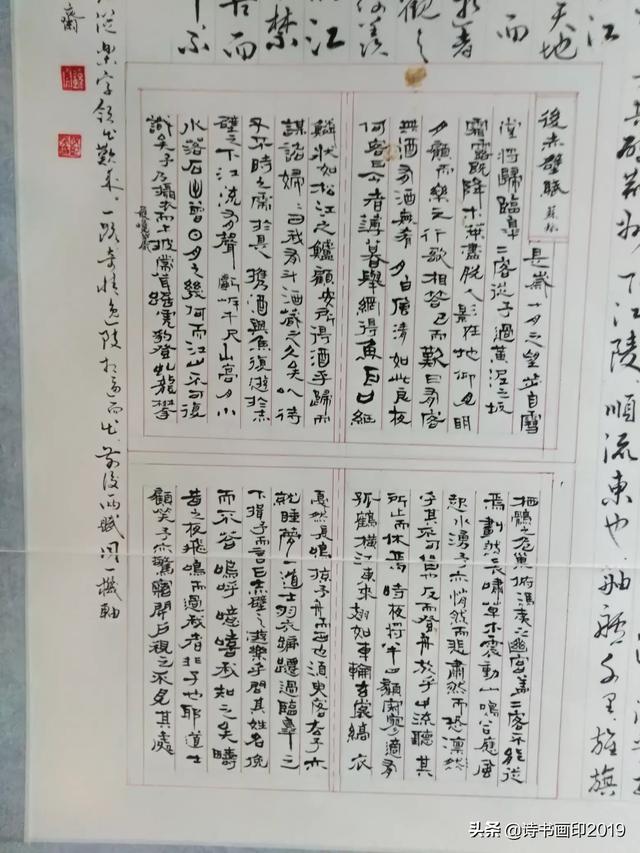 其破荊州下江陵順流東也舳艫千里旌旗
江
天地
而
江
禁
而
後赤壁賦 蘇軾
是歲十月之望步自雪
堂將歸臨皋二客從予過黃泥之坂
霜露既降木葉盡脫人影在地仰見明
月顧而樂之行歌相答已而歎曰有客
無酒有酒無肴月白風清如此良夜
何客曰今者薄暮舉網得魚巨口細
鱗狀如松江之鱸顧安所得酒乎歸而
謀諸婦婦曰我有斗酒藏之久矣以待
子不時之需於是攜酒與魚復遊於赤
壁之下江流有聲斷岸千尺山高月小
水落石出曾日月之幾何而江山不可復
識矣予乃攝衣而上披蒙茸踞虎豹登虬龍攀
履巉巖
栖鶻之危巢俯馮夷之幽宮蓋二客不能從
焉劃然長嘯草木震動山鳴谷應風
起水湧予亦悄然而悲肅然而恐凜然
乎其不可留也反而登舟放乎中流聽其
所止而休焉時夜將半四顧寂寥適有
孤鶴橫江東來翅如車輪玄裳縞衣
戛然長鳴掠予舟而西也須臾客去予亦
就睡夢一道士羽衣蹁躚過臨皋之
下揖予而言曰赤壁之遊樂乎問其姓名俛
而不答嗚呼噫嘻我知之矣疇
昔之夜飛鳴而過我者非子也耶道士
顧笑予亦驚寤開戶視之不見其處
從樂字領出歎來一路奇情逸相逼而出前後兩賦同一機軸
齋
头条 @诗书画印2019